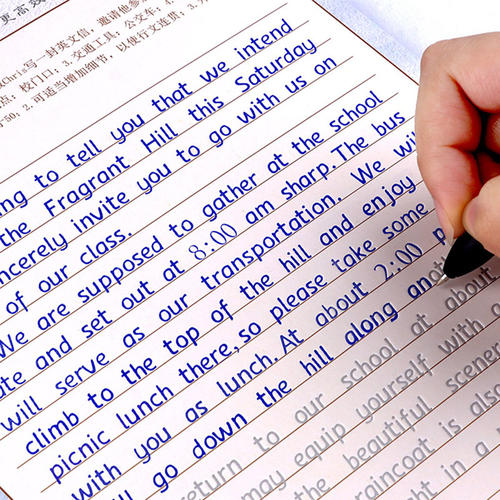 更高效
Chris写一封英文信，邀请他参
点：校门口；3.交通工具：公交车；4.
2.可适当增加细节，以使行文连贯；3.
to tell you that we intend
the Fragrant Hill this Saturday
sincerely invite you to go with us on
of our class.
We are supposed to gather at the school
and set out at 8:00 am sharp. The bus
will serve as our transportation. We
climb to the top of the hill and enjoy
picnic lunch there, so please take some
with you as lunch. At about 2:00 p
go down the hill along
return to our school at about
may equip yourself with
the beautiful
raincoat is also
in a